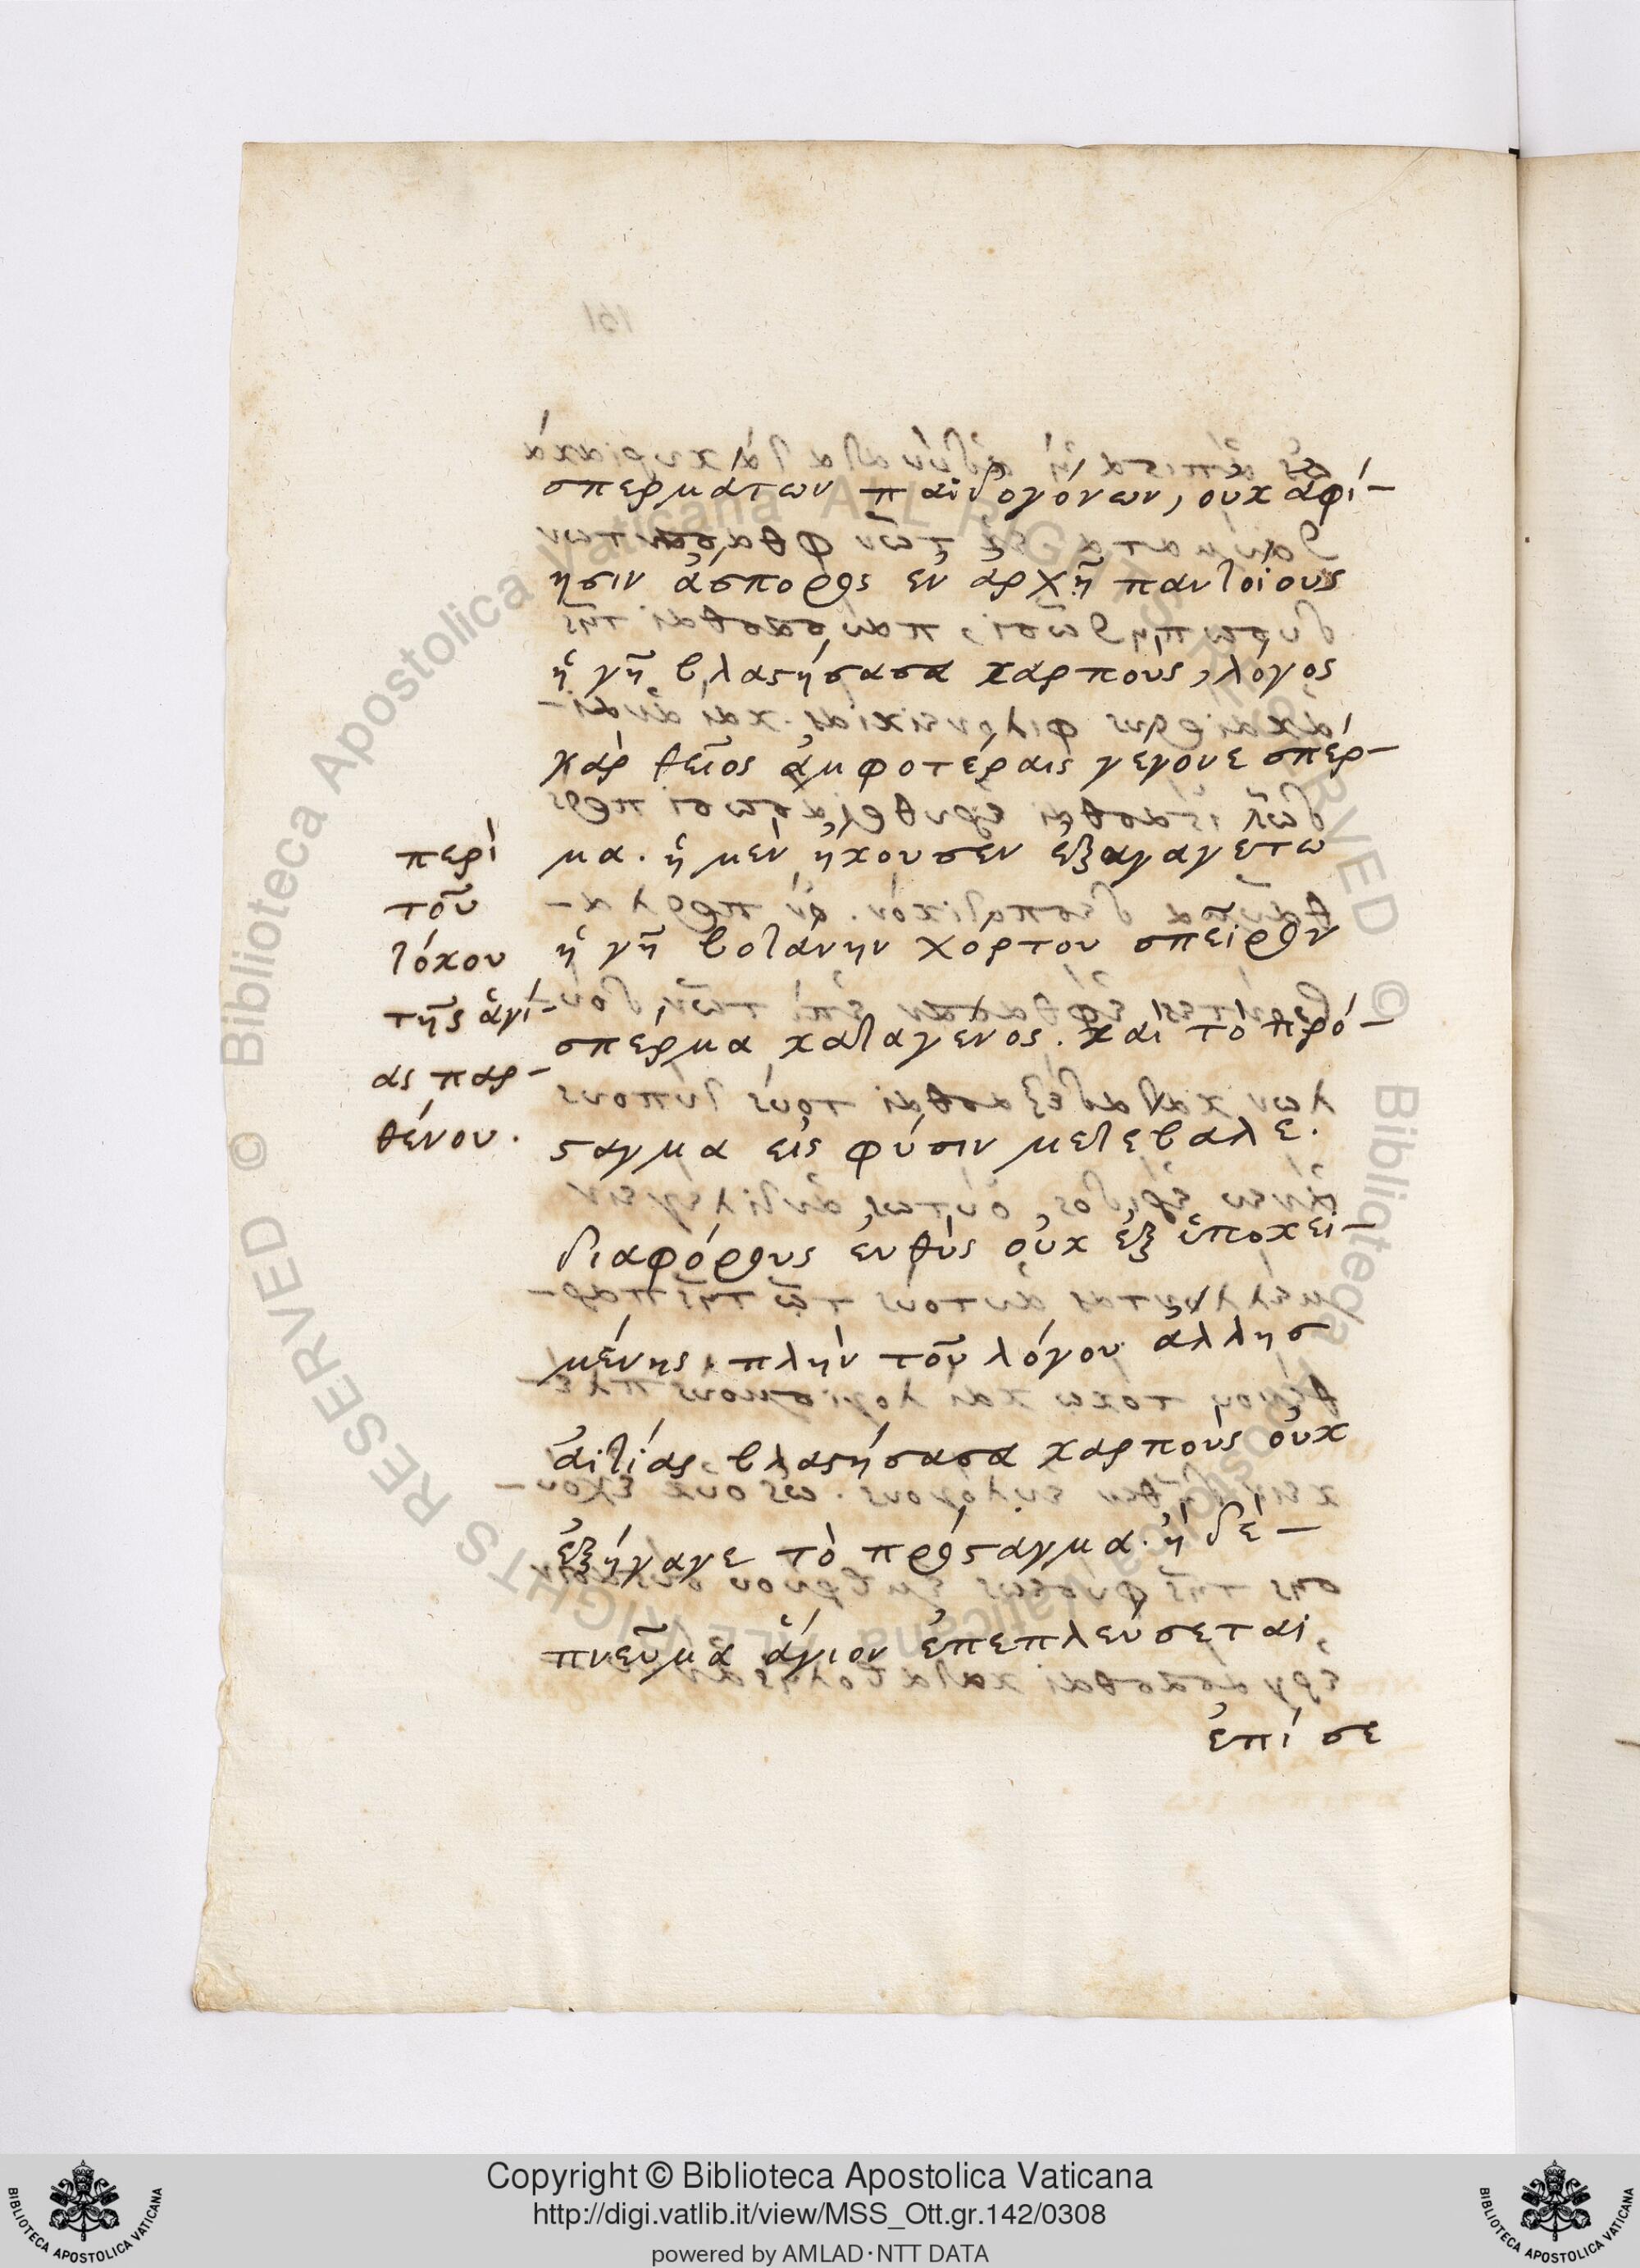 σπερμάτων παιδογόνων, οὐκ ἀφί-
ησιν ἄσπορος ἐν ἀρχῇ παντοίους
ἡ γῆ βλαστήσασα καρποὺς, λόγος
γὰρ θεῖος ἀμφοτέραις γέγονε σπέρ-
μα. ἡ μὲν ἤκουσεν ἐξαγαγέτω
ἡ γῆ βοτάνην χόρτου σπεῖρον
σπέρμα καταγένος. καὶ τὸ πρό-
σταγμα εἰς φύσιν μετέβαλε.
διαφόρους εὐθὺς οὐκ ἐξ ὑποκει-
μένης πλὴν τοῦ λόγου ἄλλης
αἰτίας βλαστήσασα καρποὺς οὐκ
ἐξήγαγε τὸ πρόσταγμα. ἡ δὲ-
πνεῦμα ἅγιον ἐπεπλεύσεται,
ἐπὶ σε
περὶ
τοῦ
τόκου
τῆς ἁγί-
ας παρ-
θένου.
Copyright © Biblioteca Apostolica Vaticana
http://digi.vatlib.it/view/MSS_Ott.gr.142/0308
powered by AMLAD·NTT DATA
BIBLIOTECA APOSTOLICA VATICANA
BIBLIOTECA APOSTOLICA VATICANA